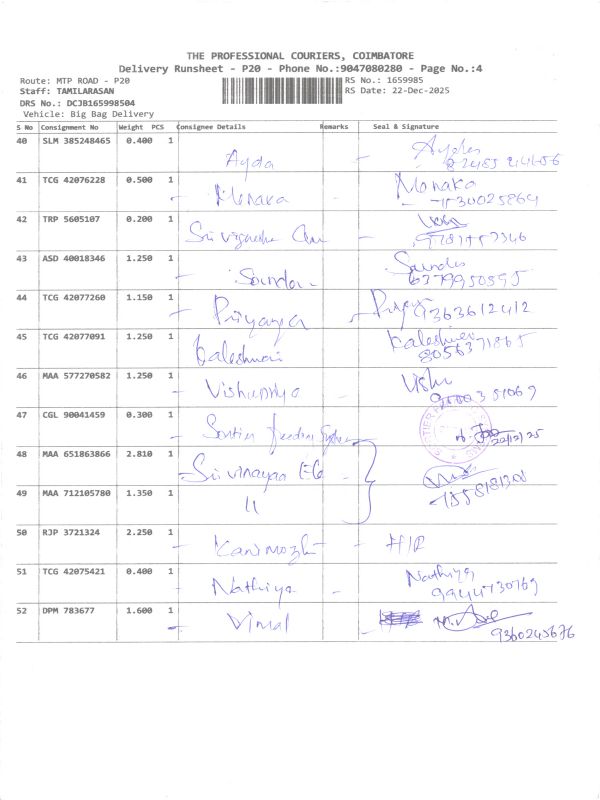 THE PROFESSIONAL COURIERS, COIMBATORE
Delivery Runsheet - P20 - Phone No.:9047080280 - Page No.:4
Route: MTP ROAD - P20 RS No.: 1659985
Staff: TAMILARASAN RS Date: 22-Dec-2025
DRS No.: DCJB165998504
Vehicle: Big Bag Delivery
S No Consignment No Weight PCS Consignee Details Remarks Seal & Signature
40 SLM 385248465 0.400 1
41 TCG 42076228 0.500 1 Menaka Menaka
42 TRP 5605107 0.200 1
43 ASD 40018346 1.250 1 6379950595
44 TCG 42077260 1.150 1 Priyanga 9363612412
45 TCG 42077091 1.250 1 Kaleshwari Kaleshwari
8056371865
46 MAA 577270582 1.250 1 Vishupriya Vishu
47 CGL 90041459 0.300 1 22/12/25
48 MAA 651863866 2.810 1 Sri vinayaga
49 MAA 712105780 1.350 1 11
50 RJP 3721324 2.250 1 Kanimozhi H/R
51 TCG 42075421 0.400 1 Nathiya Nathiya
9944730769
52 DPM 783677 1.600 1 Vimal
9360245676